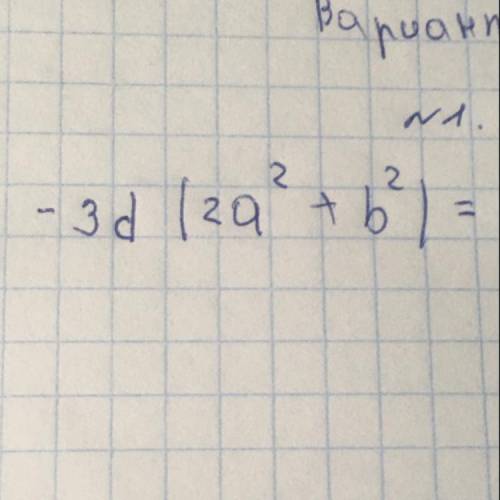 Вариант
№1.
-3d (2a² + b²) =